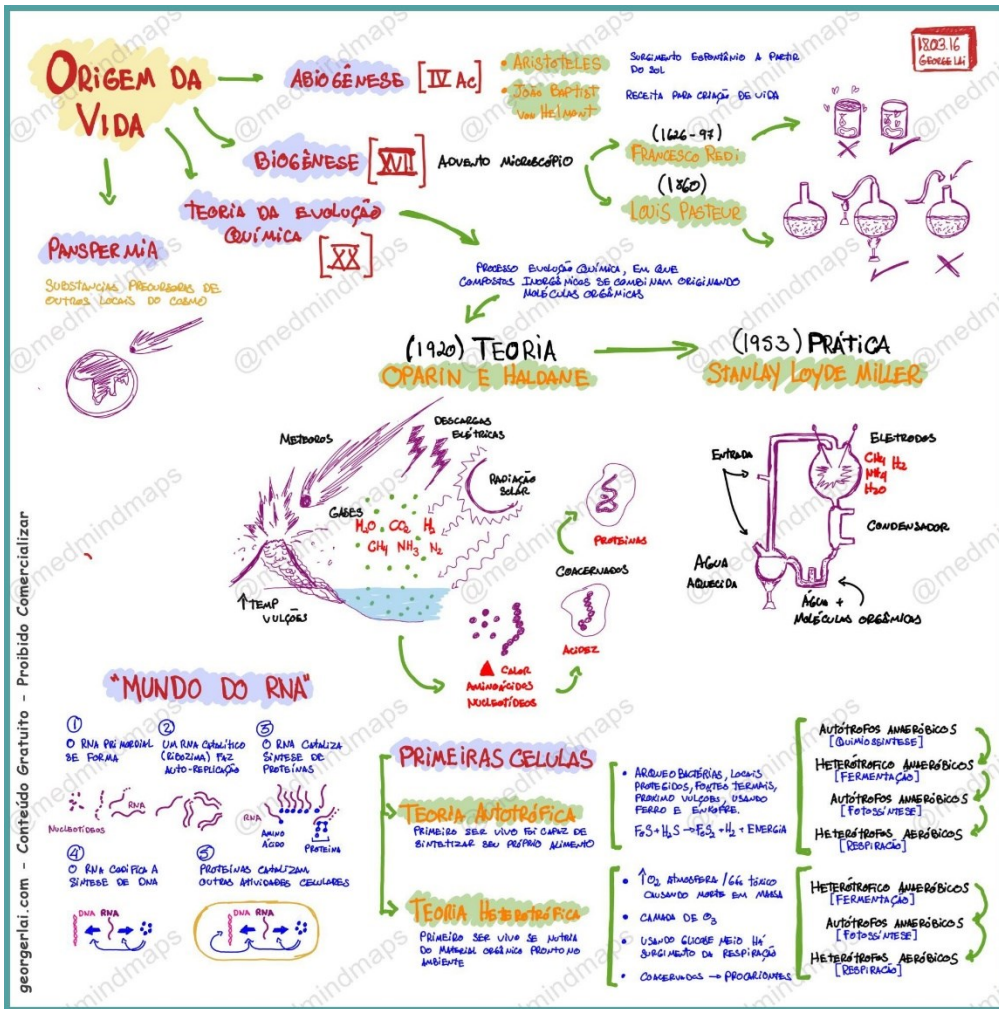 ORIGEM DA
VIDA
ABIOGÊNESE [IV AC]
• ARISTOTELES
SURGIMENTO ESPONTÂNIO A PARTIR
DO SOL
• JOÃO BAPTIST
VON HELMONT
RECEITA PARA CRIAÇÃO DE VIDA
18.03.16
GEORGE LAI
BIOGÊNESE [XVII] ADVENTO MICROSCÓPIO
(1626-97)
FRANCESCO REDI
(1860)
LOUIS PASTEUR
TEORIA DA EVOLUÇÃO
QUÍMICA
[XX]
PANSPERMIA
SUBSTANCIAS PRECURSORAS DE
OUTROS LOCAIS DO COSMO
PROCESSO EVOLUÇÃO QUÍMICA, EM QUE
COMPOSTOS INORGÂNICOS SE COMBINAM ORIGINANDO
MOLÉCULAS ORGÂNICAS
(1920) TEORIA
OPARIN E HALDANE
(1953) PRÁTICA
STANLAY LOYDE MILLER
METEOROS
DESCARGAS
ELÉTRICAS
RADIAÇÃO
SOLAR
GASES
H2O CO2 H2
CH4 NH3 N2
↑TEMP
VULÇÕES
PROTEINAS
COACERVADOS
ACIDEZ
CALOR
AMINOÁCIDOS
NUCLEOTÍDEOS
ENTRADA
ELETRODOS
CH4 H2
NH4
H2O
CONDENSADOR
ÁGUA
AQUECIDA
ÁGUA +
MOLÉCULAS ORGÂMICAS
"MUNDO DO RNA"
①
O RNA PRIMORDIAL
SE FORMA
②
UM RNA CATALÍTICO
(RIBOZIMA) FAZ
AUTO-REPLICAÇÃO
③
O RNA CATALIZA
SÍNTESE DE
PROTEÍNAS
NUCLEOTÍDEOS
RNA
RNA
AMINO
ÁCIDO
PROTEINA
④
O RNA CODIFICA A
SÍNTESE DE DNA
DNA RNA
⑤
PROTEÍNAS CATALIZAM
OUTRAS ATIVIDADES CELULARES
DNA RNA
PRIMEIRAS CELULAS
TEORIA AUTOTRÓFICA
PRIMEIRO SER VIVO FOI CAPAZ DE
SINTETIZAR SEU PRÓPRIO ALIMENTO
• ARQUEOBACTÉRIAS, LOCAIS
PROTEGIDOS, FONTES TERMAIS,
PROXIMO VULÇOES, USANDO
FERRO E ENXOFRE.
FeS + H2S → FeS2 + H2 + ENERGIA
AUTÓTROFOS ANAERÓBICOS
[QUIMIOSSÍNTESE]
HETERÓTROFICO ANAERÓBICOS
[FERMENTAÇÃO]
AUTÓTROFOS ANAERÓBICOS
[FOTOSSÍNTESE]
HETERÓTROFOS AERÓBICOS
[RESPIRAÇÃO]
TEORIA HETEROTRÓFICA
PRIMEIRO SER VIVO SE NUTRIA
DO MATERIAL ORGÂNICO PRONTO NO
AMBIENTE
• ↑O2 ATMOSFERA / GÁS TÓXICO
CAUSANDO MORTE EM MASSA
• CAMADA DE O3
• USANDO GLICOSE MEIO HÁ
SURGIMENTO DA RESPIRAÇÃO
• COACERVADOS → PROCARIONTES
HETERÓTROFICO ANAERÓBICOS
[FERMENTAÇÃO]
AUTÓTROFOS ANAERÓBICOS
[FOTOSSÍNTESE]
HETERÓTROFOS AERÓBICOS
[RESPIRAÇÃO]
georgerlai.com - Conteúdo Gratuito - Proibido Comercializar
@medmindmaps